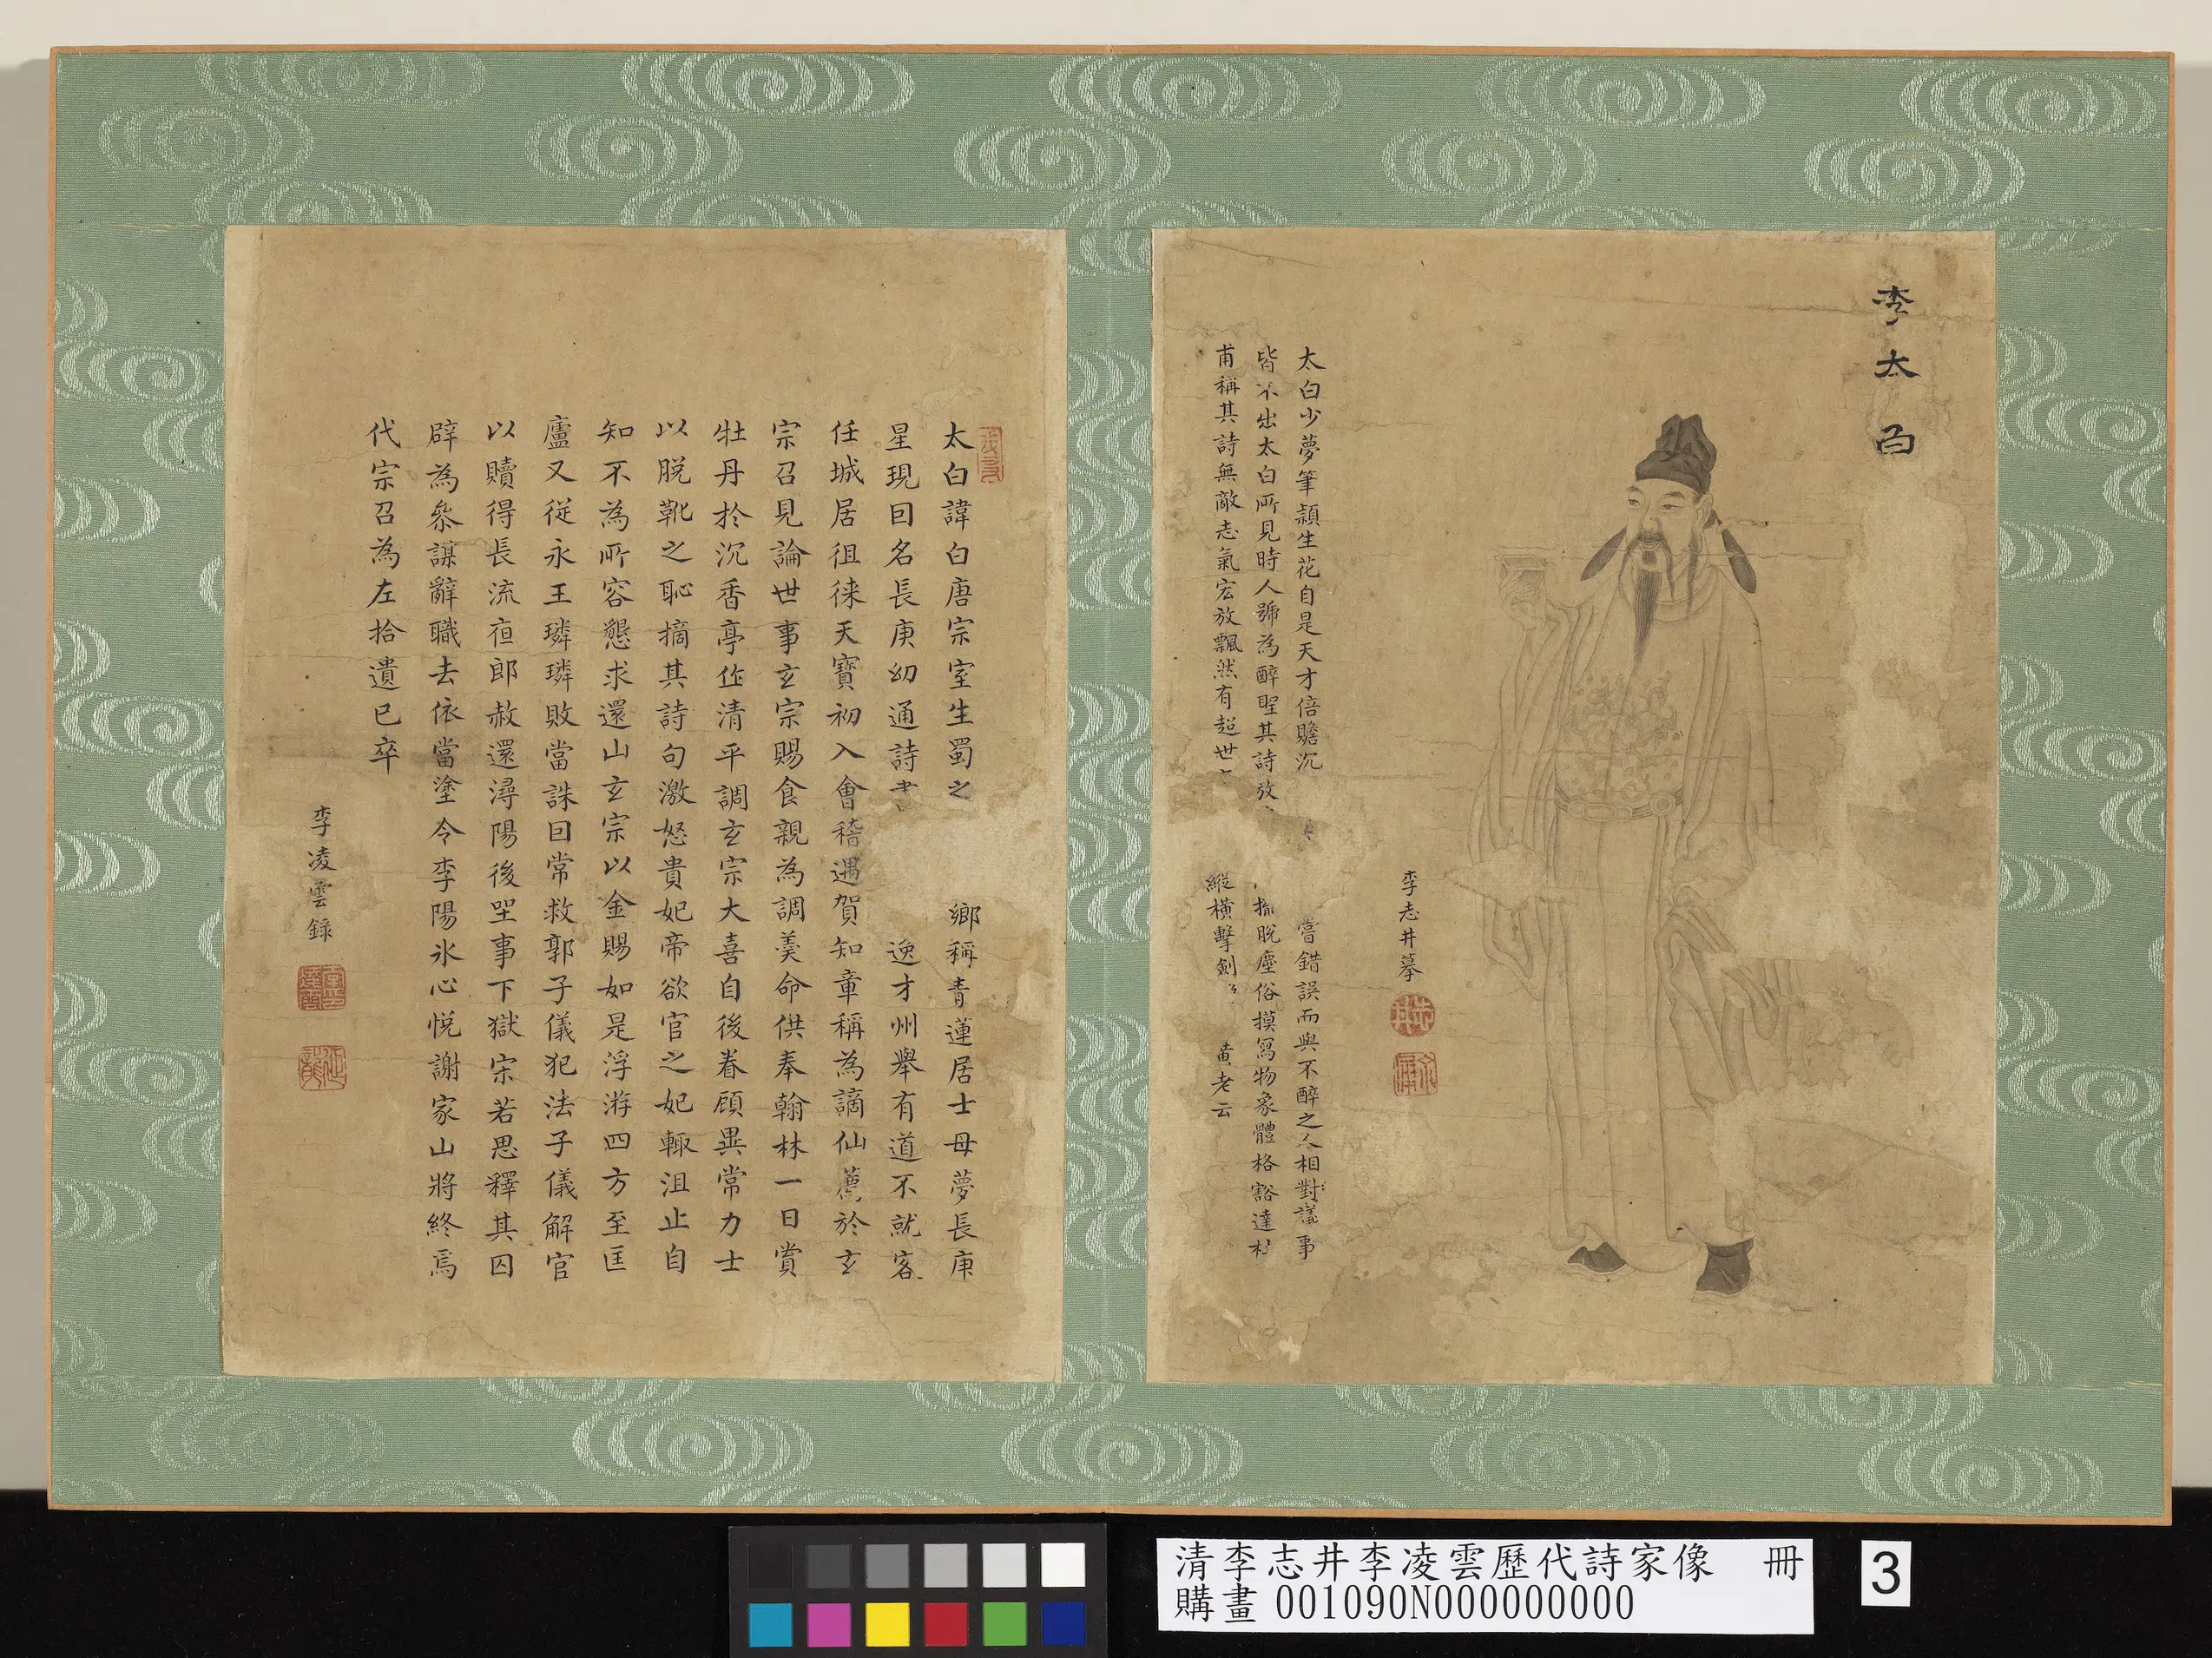 李太白
太白少夢筆頴生花自是天才倍贍沉
嘗錯誤而與不醉之人相對議事
皆不出太白所見時人號為醉聖其詩放
脫塵俗摸寫物象體格豁達杜
甫稱其詩無敵志氣宏放飄然有超世
縱橫擊劍
黃老云
李志井摹
太白諱白唐宗室生蜀之
鄉稱青蓮居士母夢長庚
星現因名長庚幼通詩書
逸才州舉有道不就客
任城居徂徠天寶初入會稽遇賀知章稱為謫仙薦於玄
宗召見論世事玄宗賜食親為調羹命供奉翰林一日賞
牡丹於沉香亭作清平調玄宗大喜自後眷顧異常力士
以脫靴之恥摘其詩句激怒貴妃帝欲官之妃輙沮止自
知不為所容懇求還山玄宗以金賜如是浮游四方至匡
廬又従永王璘璘敗當誅囙常救郭子儀犯法子儀解官
以贖得長流夜郎赦還潯陽後坐事下獄宋若思釋其囚
辟為叅謀辭職去依當塗令李陽氷心悅謝家山將終焉
代宗召為左拾遺已卒
李凌雲錄
清李志井李凌雲歷代詩家像　冊
購畫 001090N000000000
3